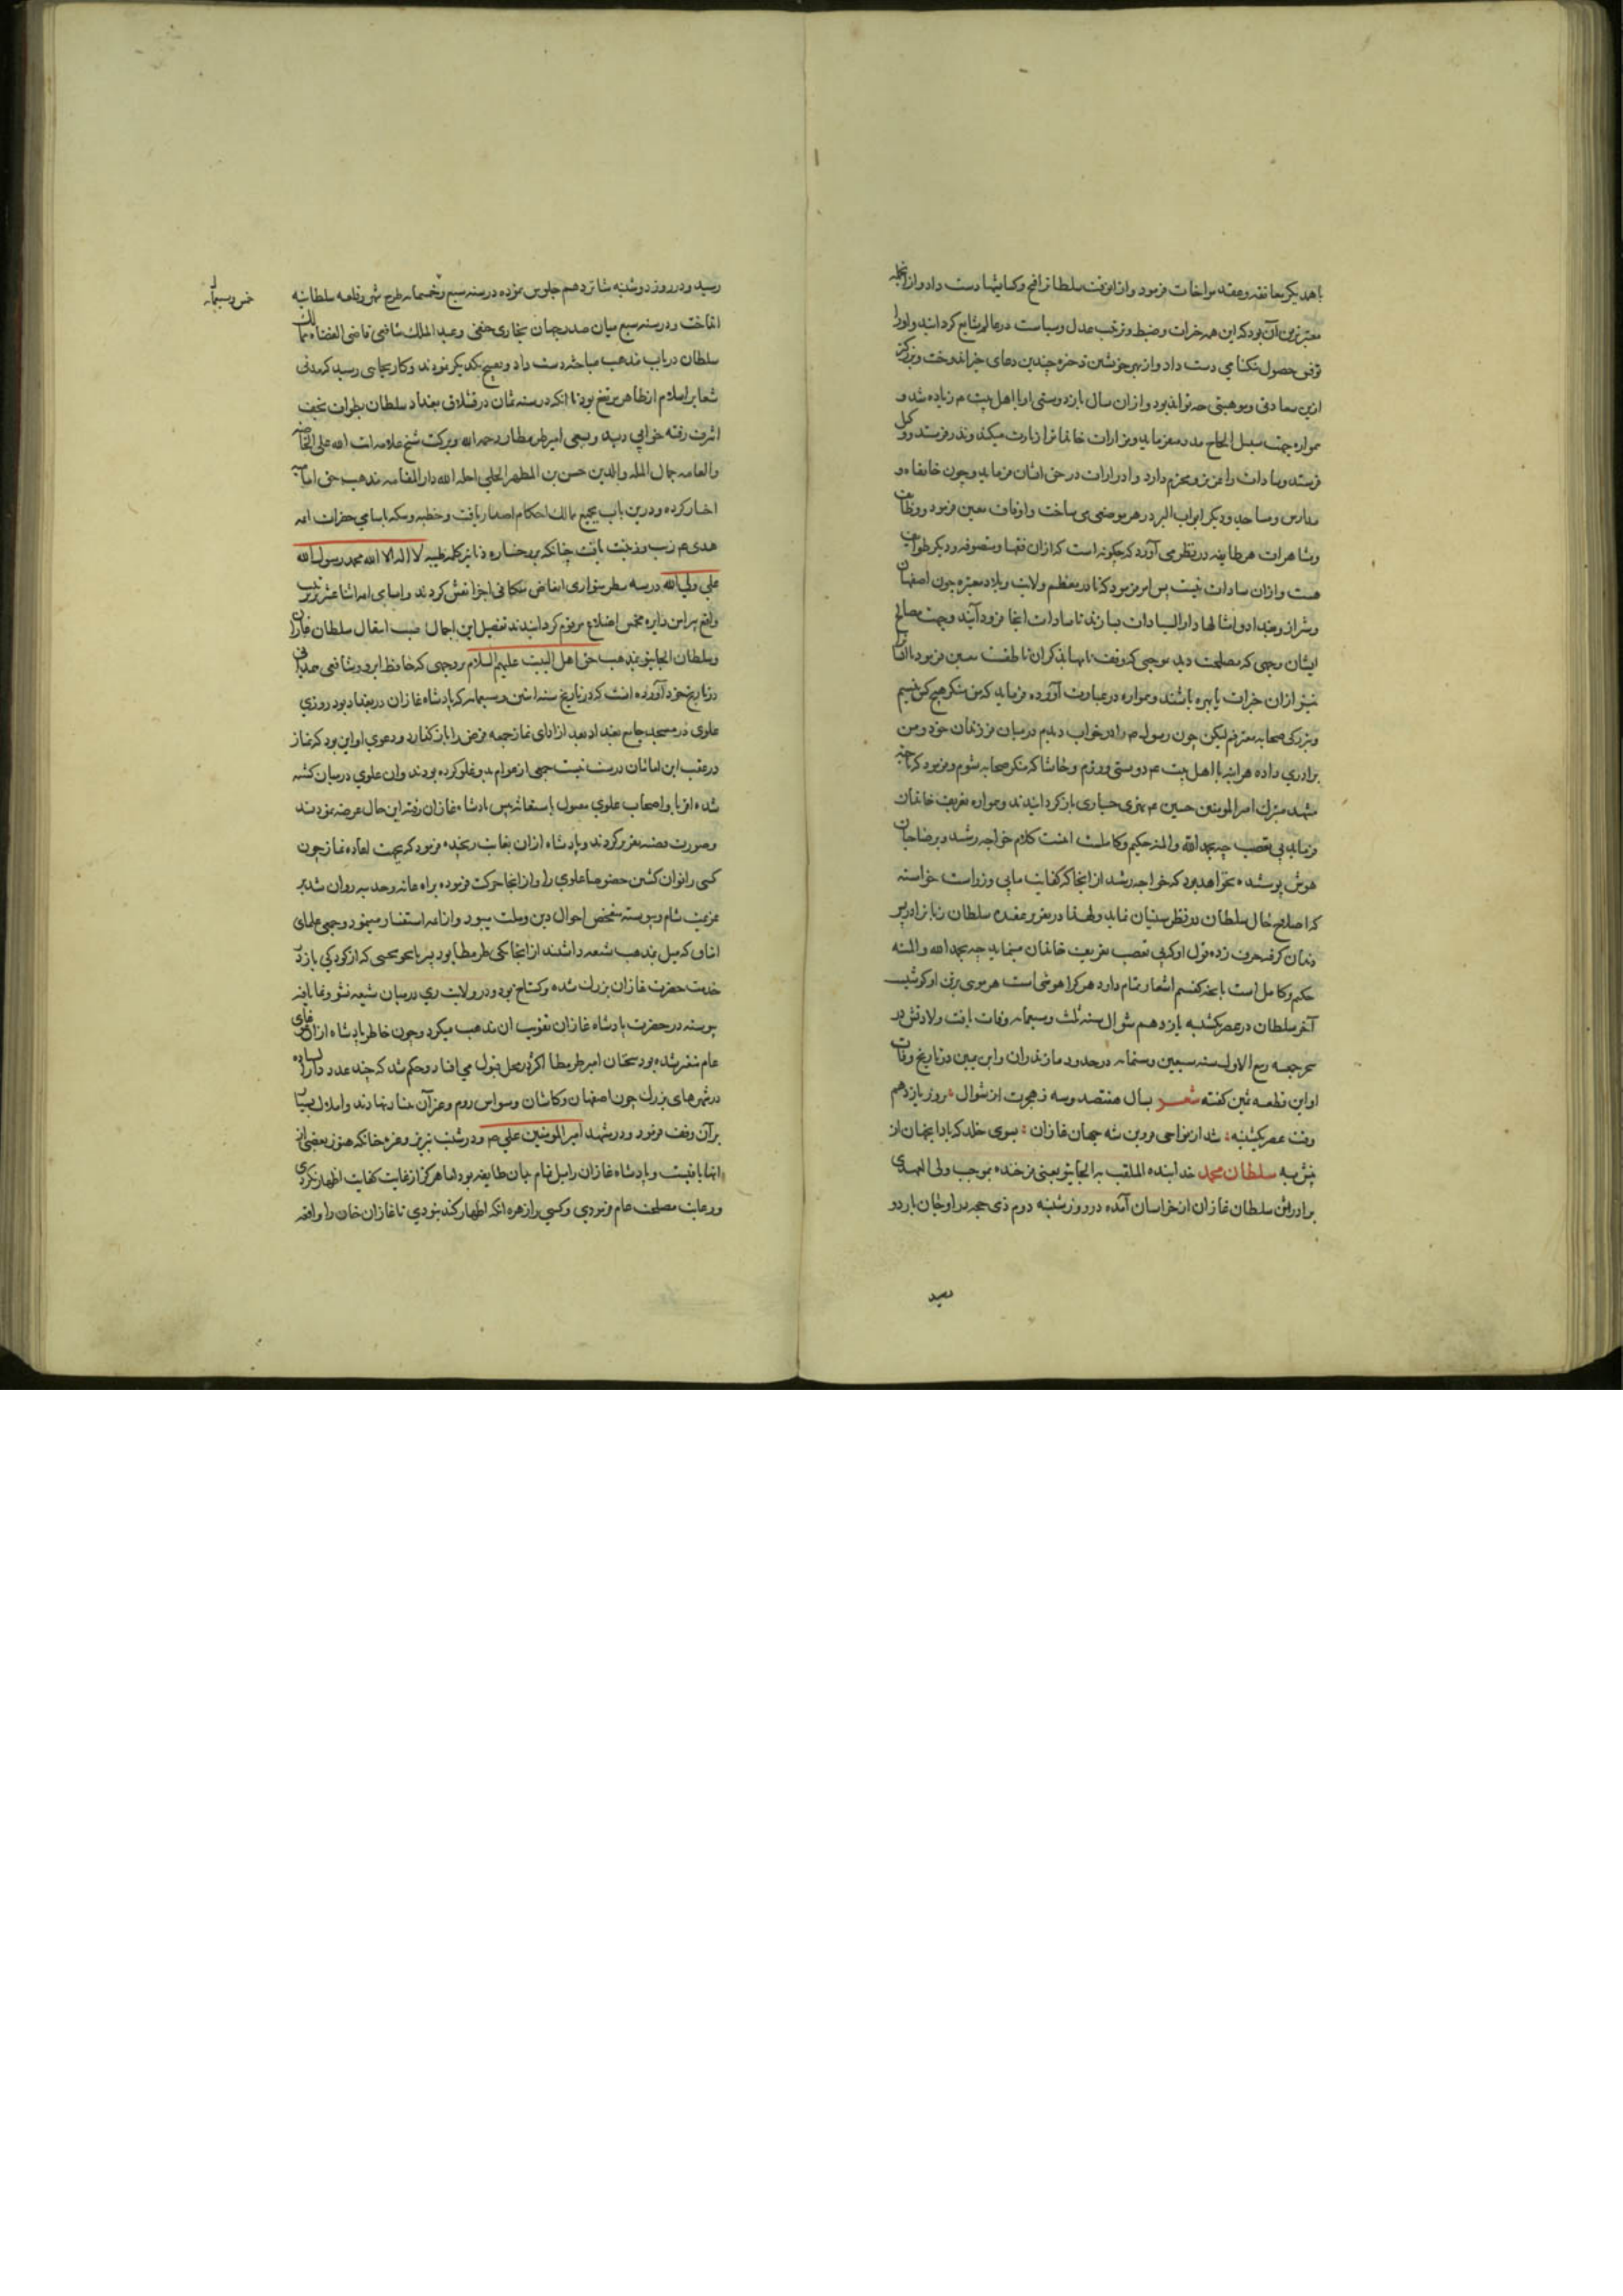 با همدیگر معانقه و عقد مواخات فرمود و از آن وقت سلطان را فتح و کسایشها دست داد و از آنجمله
معتبرترین آن بود که این همه خیرات و ضبط و ترتیب عدل و سیاست در عالم شایع گردانید و او را
توفیق حصول نیکنامی دست داد و از بهر خویشتن ذخیره چندین دعای خیر اندوخت و بزرگتر
ازین سعادتی و موهبتی چه تواند بود و از آن سال باز دوستی او با اهل بیت م زیاده شد و
همواره جهت سبیل الحاج مدد میفرماید و مزارات خاندان را زیارت میکند و نذر فرستد و
فرستد و سادات را عزیز و محترم دارد و ادرارات در حق ایشان فرماید و چون خانقاه و
مدارس و مساجد و دیگر ابواب البر در هر موضعی می ساخت و اوقاف معین فرمود و وظایف
و مشاهرات هر طایفه در نظر می آورد که چگونه است که از آن فقها و متصوفه و دیگر طوایف
هست و از آن سادات نیست پس امر فرمود که تا در معظم ولایت و بلاد معتبره چون اصفهان
و شیراز و بغداد و امثالها دار السیادات بسازند تا سادات آنجا فرود آیند و جهت مصالح
ایشان وجهی که مصلحت دید بموجبی که وقف نامها بذکر آن ناطقست معین فرمود تا ایشان
نیز از آن خیرات با بهره باشند و همواره در عبارت آورده فرماید که من منکر هیچ کس نیسم
و بزرگی صحابه معترفم لیکن چون رسول ص را در خواب دیدم و میان فرزندان خود و من
برادری داده هر اینه با اهل بیت م دوستی ورزم و حاشا که منکر صحابه شوم و فرمود که تا جهة
مشهد متبرک امیر المومنین حسین م نهری جاری باز گردانیدند و همواره تعریف خاندان
فرماید بی تعصب چه بحمد الله والمنه حکیم و کاملست اینست کلام خواجه رشید و بر صاحبان
هوش پوشیده نخواهد بود که خواجه رشید از آنجا که کفایت مابی وزراست خواسته
که اصلاح حال سلطان در نظر سنیان نماید و لهذا در تقریر عقیده سلطان زبان را در زیر
دندان گرفته حرف زده و قول او که بی تعصب تعریف خاندان مینماید چه بحمد الله والمنه
حکیم و کامل است بانچه گفتیم اشعار تمام دارد هر که را هوشی است
آخر سلطان در عصر یکشنبه یازدهم شوال سنه ثلث و سبعمایه وفات یافت ولادتش در
سحر جمعه ربیع الاول سنه سبعین و ستمایه در حدود مازندران و ابن یمین در تاریخ وفات
او این قطعه ثمین گفته شعر بسال هفتصد و سه ز هجرت از شوال : روز یازدهم
وقت عصر یکشنبه : شد از نواحی قزوین شه جهان غازان : بسوی خلد که بادا بجهان از
خوش به سلطان محمد خدابنده الملقب به الجایتو یعنی فرخنده بموجب ولی العهدی
برادرش سلطان غازان از خراسان آمده در روز شنبه دوم ذی حجه در اوجان باردو
رسید
رسید و در روز دوشنبه شانزدهم جلوس نموده در سنه سبع و خمسمایه طرح شهر و قلعه سلطانیه
خمس و سبعمایه
انداخت و در سنه سبع میان صدر جهان بخاری حنفی و عبد الملک شافعی قاضی القضاة ممالک
سلطان در باب مذهب مباحثه دست داد و تقبیح یکدیگر نمودند و کار بجایی رسید که مدتی
شعایر اسلام از ظاهر مرتفع بود تا آنکه در سنه ثمان در قشلاق بغداد سلطان بطواف نجف
اشرف رفته خوابی دید و بسعی امیر طرمطاز رحمه الله و برکت شیخ علامه ایت الله علی الخاصه
والعامه جمال المله والدین حسن بن المطهر الحلی احله الله دار المقامه مذهب حق امامیه
اختیار کرده و درین باب بجمیع ممالک احکام اصدار یافت و خطبه و سکه باسامی حضرات ائمه
هدی م زیب و زینت یافت چنانکه بر رخساره دنانیر کلمه طیبه لا اله الا الله محمد رسول الله
علی ولی الله در سه سطر متوازی نقش کردند و اسامی ائمه اثنا عشر بترتیب
واقع بر این دایره مخمس اضلاع مرقوم گردانیدند تفصیل این اجمال سبب انتقال سلطان غازان
و سلطان الجایتو بمذهب حق اهل البیت علیهم السلام بر وجهی که حافظ ابرو شافعی همدانی
در تاریخ خود آورده آنست که در تاریخ سنه اثنین و سبعمایه که پادشاه غازان در بغداد بود روزی
علوی در مسجد جامع بغداد بعد از ادای نماز جمعه فرض را باز گذارد و دعوی او این بود که نماز
در عقب این امامان درست نیست جمعی از عوام بدو غلو کرده بودند و آن علوی در میان کشته
شده اقربا و اصحاب علوی مقتول باستغاثه پیش پادشاه غازان رفته این حال عرضه نمودند
و صورت قضیه تقریر کردند و پادشاه از آن بغایت رنجیده فرمود که بجهت اعاده نماز چون
کسی را توان کشتن خصوصا علوی را و از آنجا حرکت فرموده براه عانه و حدیثه روان شد بر
عزیمت شام و پیوسته تفحص احوال دین و ملت میبود و از ائمه استفسار مینمود و جمعی علمای
آفاق که میل بمذهب شیعه داشتند از آنجا یکی طرمطاز بود پسر که از کودکی باز در
خدمت حضرت غازان بزرگ شده و گستاخ بود و در ولایت ری در میان شیعه نشو و نما یافته
پیوسته در حضرت پادشاه غازان تقویت آن مذهب میکرد و چون خاطر پادشاه از آن
عام متغیر شده بود سخنان امیر طرمطاز در محل قبول می افتاد و حکم شد که چند عدد دار السیاده
در شهرهای بزرگ چون اصفهان و کاشان و سیواس روم و غیر آن بنا نهادند و املاک بسیار
بر آن وقف فرمود و در مشهد امیر المومنین علی م و در شنب تبریز و غیره چنانکه هنوز بعضی از
آنها باقیست و پادشاه غازان را میل تمام بجانب طایفه بود اما هرگز از غایت کفایت اظهار نکردی
و رعایت مصلحت عام فرمودی و کسی را زهره آنکه اظهار کند نبودی تا غازان خان را واقعه